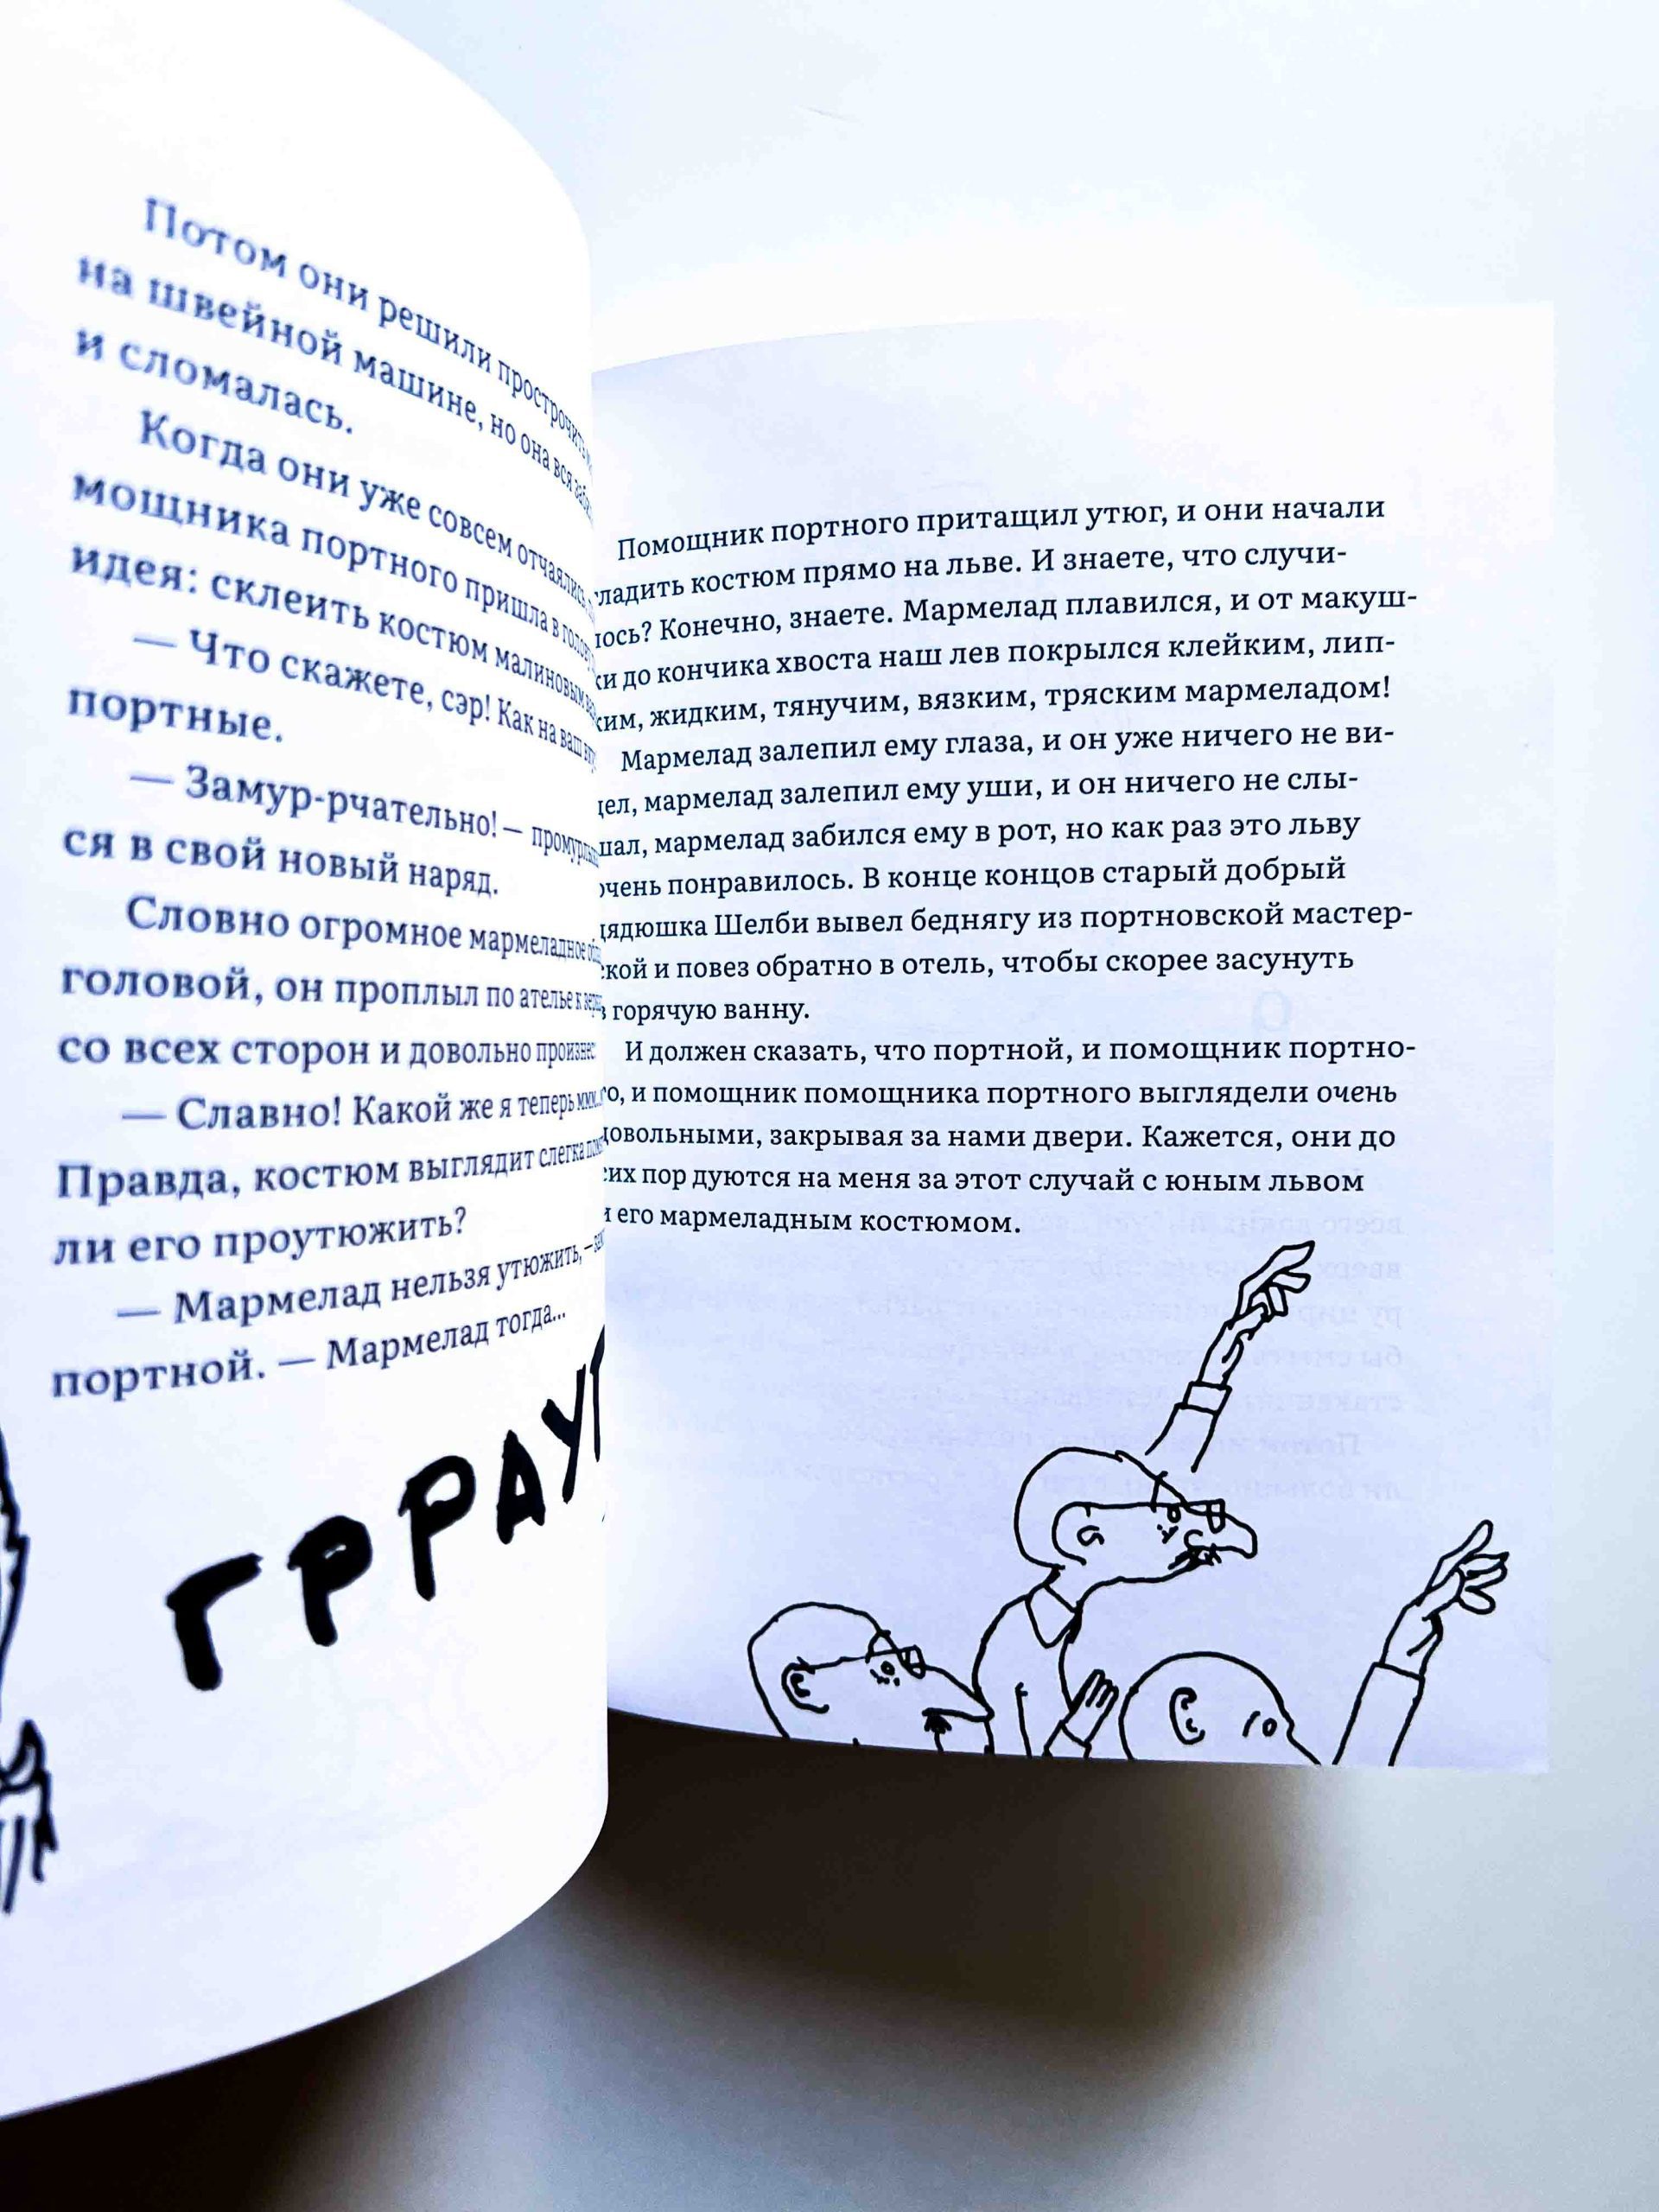 Потом они решили прострочить
на швейной машине, но она вся
и сломалась.
Когда они уже совсем отчаялись,
мощника портного пришла в голову
идея: склеить костюм малиновым
— Что скажете, сэр! Как на ваш
портные.
— Замур-рчательно! —
ся в свой новый наряд.
Словно огромное мармеладное
головой, он проплыл по ателье к
со всех сторон и довольно произнес
— Славно! Какой же я теперь
Правда, костюм выглядит слегка
ли его проутюжить?
— Мармелад нельзя утюжить, —
портной. — Мармелад тогда...
ГРРАУ
Помощник портного притащил утюг, и они начали
гладить костюм прямо на льве. И знаете, что случи-
лось? Конечно, знаете. Мармелад плавился, и от макуш-
ки до кончика хвоста наш лев покрылся клейким, лип-
ким, жидким, тянучим, вязким, тряским мармеладом!
Мармелад залепил ему глаза, и он уже ничего не ви-
дел, мармелад залепил ему уши, и он ничего не слы-
шал, мармелад забился ему в рот, но как раз это льву
очень понравилось. В конце концов старый добрый
дядюшка Шелби вывел беднягу из портновской мастер-
ской и повез обратно в отель, чтобы скорее засунуть
в горячую ванну.
И должен сказать, что портной, и помощник портно-
го, и помощник помощника портного выглядели очень
довольными, закрывая за нами двери. Кажется, они до
сих пор дуются на меня за этот случай с юным львом
и его мармеладным костюмом.